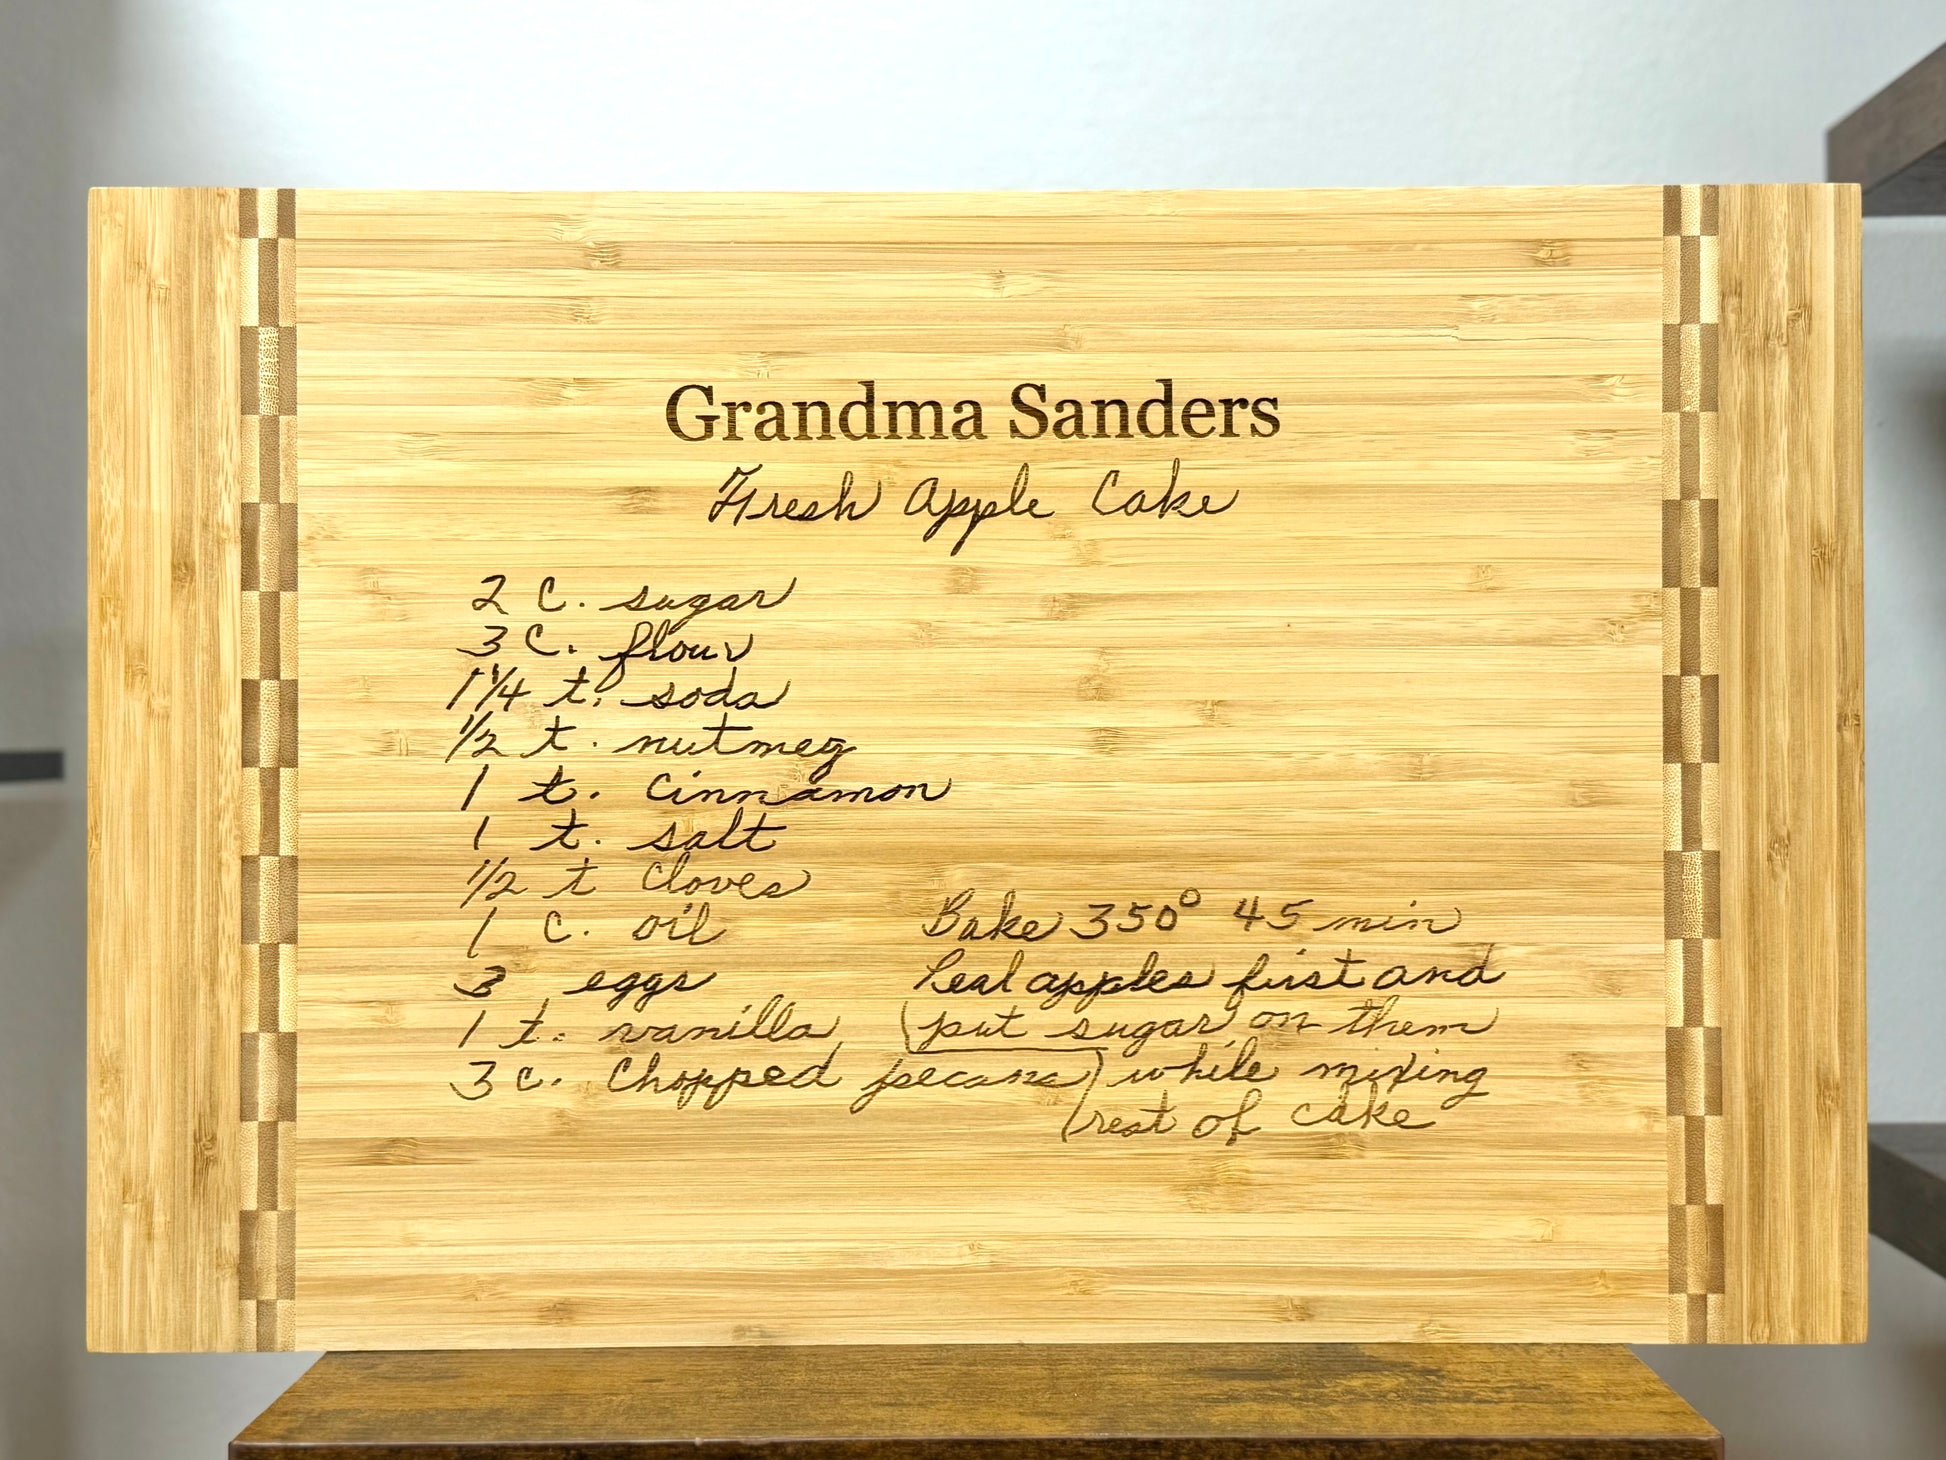 Grandma Sanders
Fresh Apple Cake
2 C. sugar
3 C. flour
1 1/4 t. soda
1/2 t. nutmeg
1 t. Cinnamon
1 t. salt
1/2 t Cloves
1 C. oil
3 eggs
1 t. vanilla
3 c. Chopped pecans
Bake 350° 45 min
Peal apples first and
(put sugar on them
) while mixing
(rest of cake